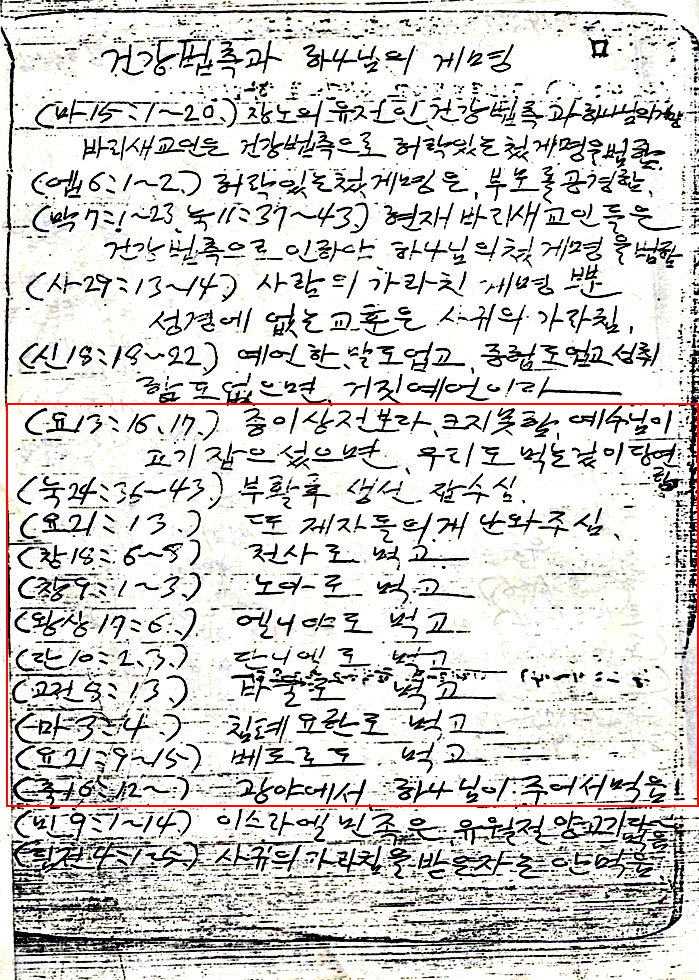 건강법측과 하나님의 게명
(마15:1~20.) 장노의 유전인, 건강법측과 하나님의게명
바리새교인은 건강법측으로 허락있는첫게명을범함.
(엡6:1~2.) 허락있는첫게명은, 부모를공경함.
(막7:1~23, 눅11:37~43.) 현재 바리새교인들은
건강법측으로 인하야 하나님의첫게명을범함
(사29:13~14.) 사람의 가라친 게명 뿐
성경에 없는교훈은 사귀의 가라침.
(신18:18~22.) 예언한, 말도업고, 증험도업고성취
함도없으면, 거짓예언이라
(요13:16,17.) 종이상전보라, 크지못함, 예수님이
고기 잡으셨으면, 우리도 먹는것이당연
함
(눅24:36~43.) 부활후 생선 잡수심.
(요21:13.) 또 제자들의게 난와주심.
(창18:6~8) 천사로 먹고
(창9:1~3.) 노아로 먹고
(왕상17:6.) 엘니야로 먹고
(단10:2,3.) 단니엘도 먹고
(고전8:13.) 바울도 먹고
(마3:4.) 침례요한로 먹고
(요21:9~15) 베드로도 먹고
(출16:12~) 광야에서 하나님이 주어서먹음!
(민9:1~14.) 이스라엘 민족은, 유월절 양고기먹음
(딤전4:1~5.) 사귀의가라침을받은자는 안먹음